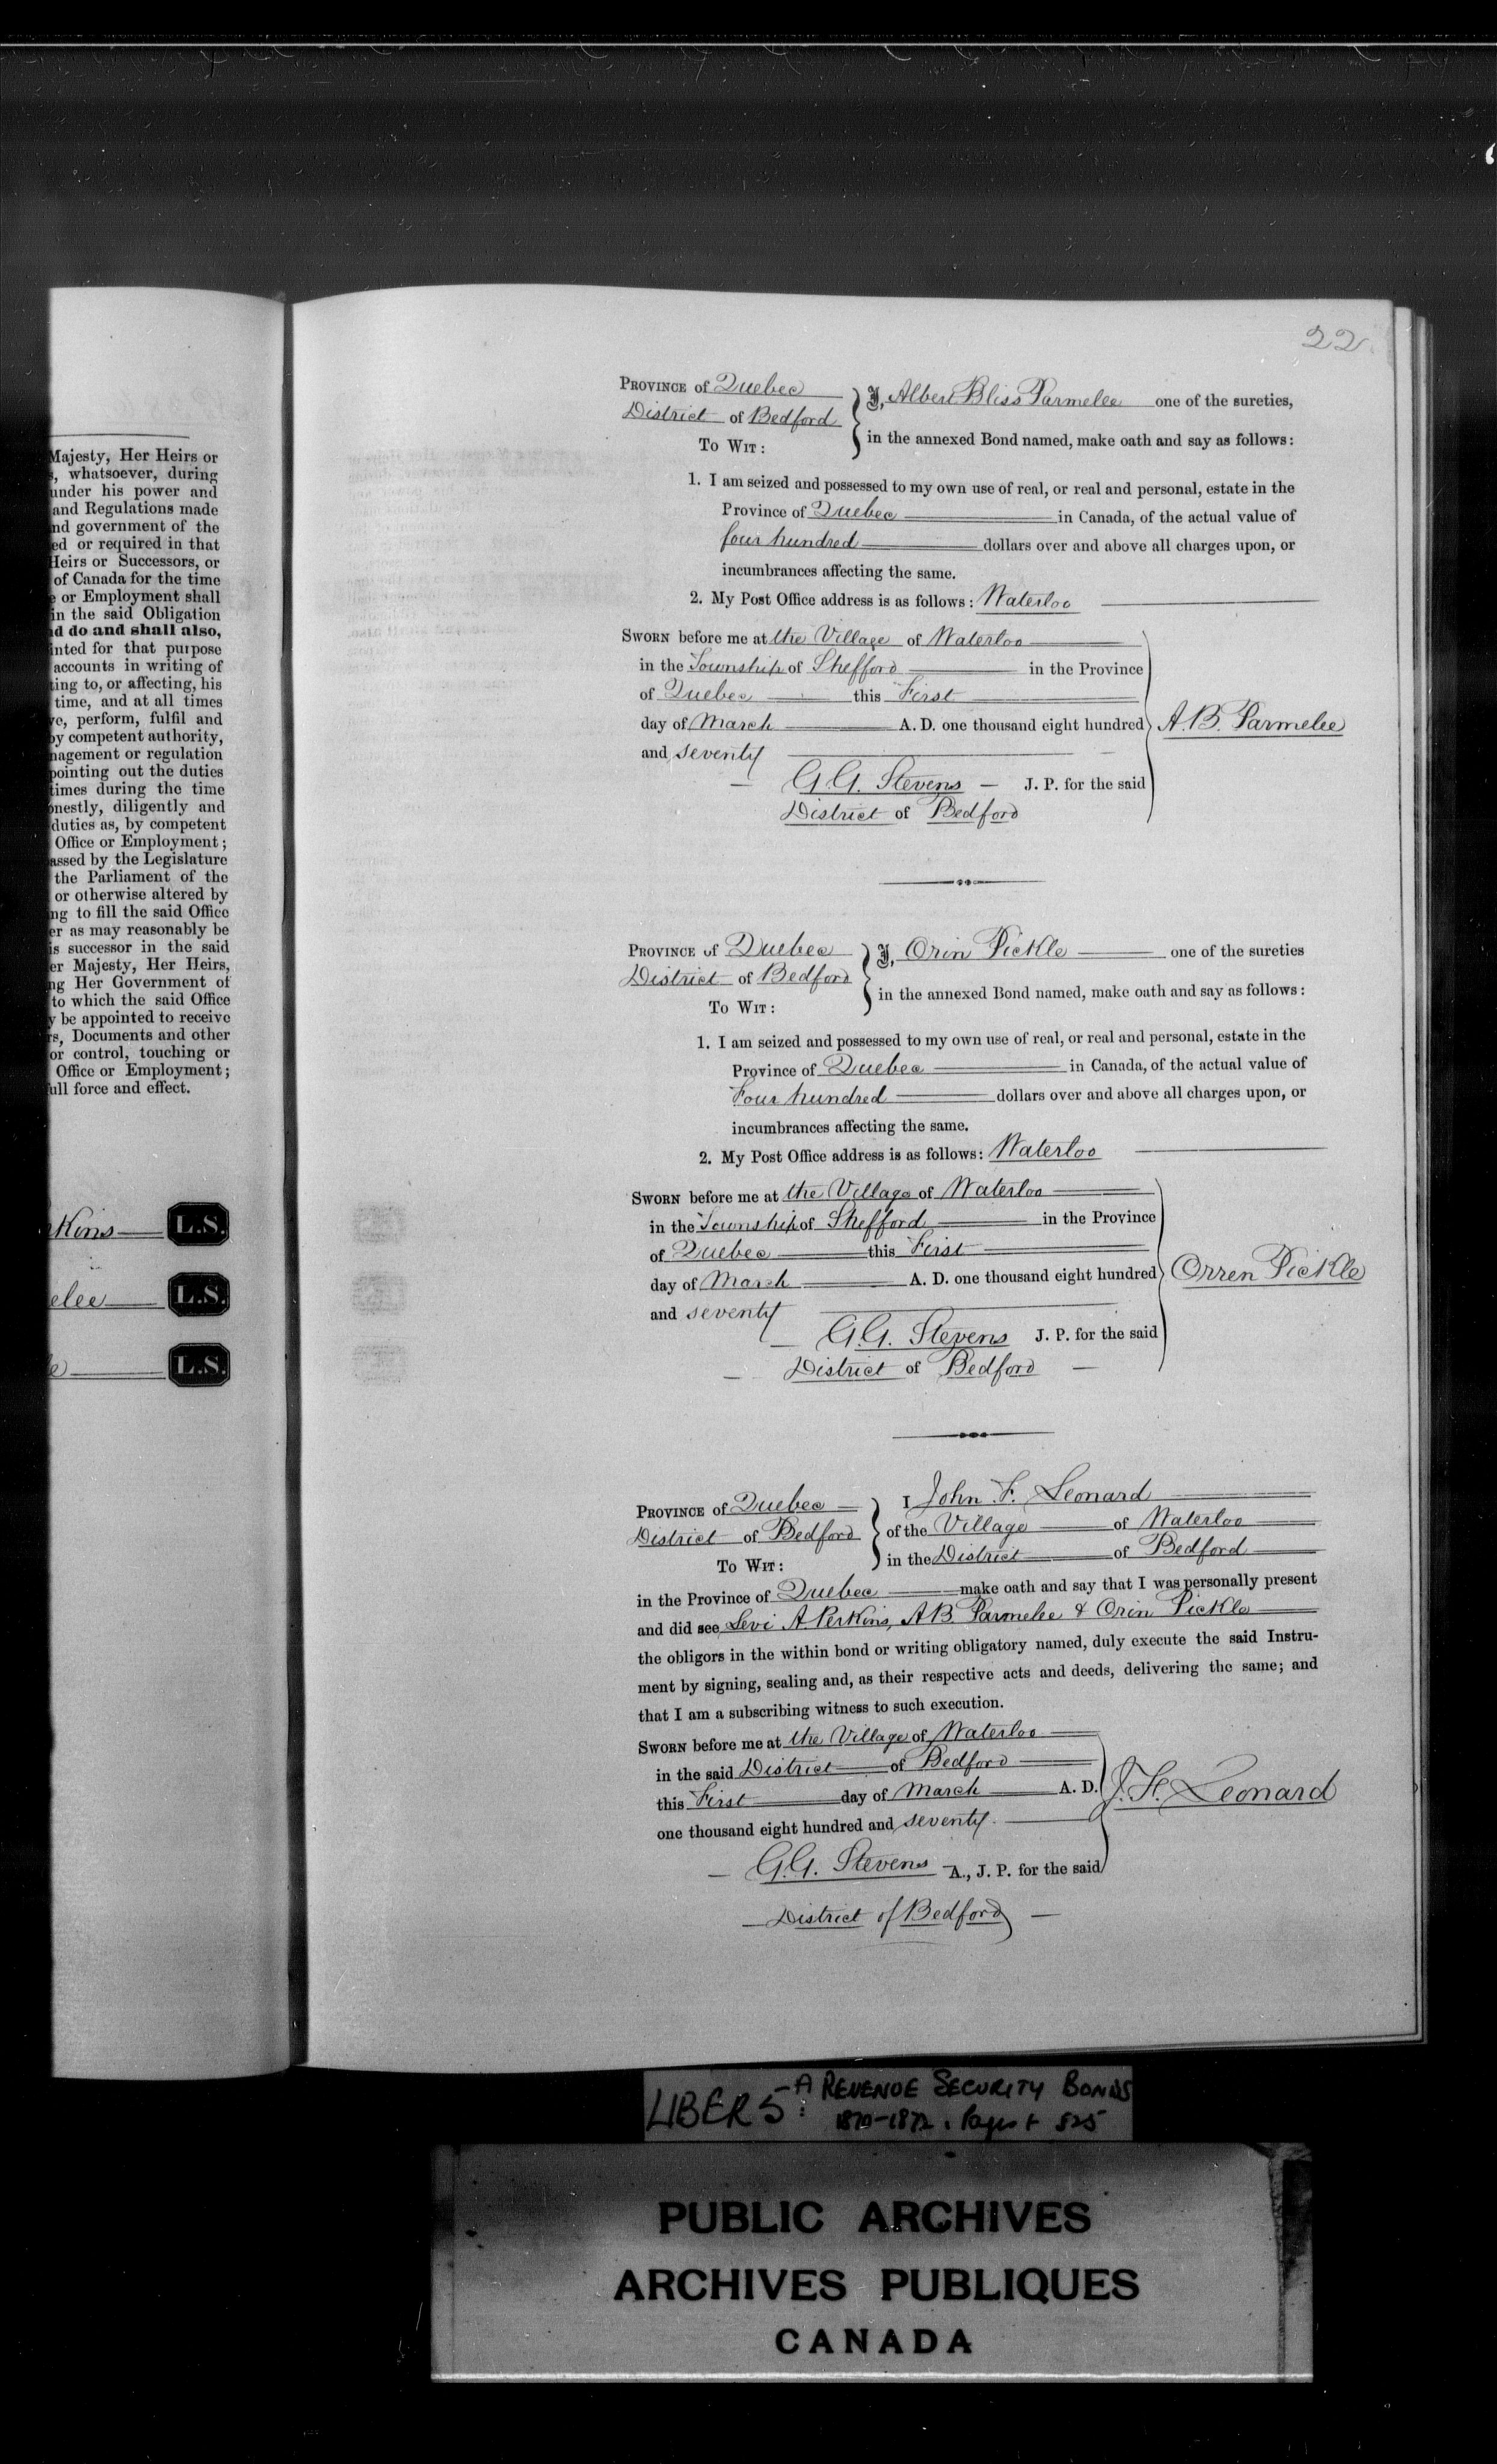 Majesty, Her Heirs or
whatsoever, during
under his power and
and Regulations made
nd government of the
ed or required in that
Heirs or Successors, or
of Canada for the time
e or Employment shall
in the said Obligation
d do and shall also,
inted for that purpose
accounts in writing of
ting to, or affecting, his
time, and at all times
ve, perform, fulfil and
by competent authority,
nagement or regulation
pointing out the duties
times during the time
onestly, diligently and
duties as, by competent
Office or Employment;
assed by the Legislature
the Parliament of the
or otherwise altered by
ng to fill the said Office
er as may reasonably be
is successor in the said
er Majesty, Her Heirs,
ng Her Government of
to which the said Office
y be appointed to receive
rs, Documents and other
or control, touching or
Office or Employment;
full force and effect.
rkins L.S.
elee L.S.
e L.S.
22
PROVINCE of Quebec
District of Bedford
TO WIT:
I, Albert Bliss Parmelee one of the sureties,
in the annexed Bond named, make oath and say as follows:
1. I am seized and possessed to my own use of real, or real and personal, estate in the
Province of Quebec in Canada, of the actual value of
four hundred dollars over and above all charges upon, or
incumbrances affecting the same.
2. My Post Office address is as follows: Waterloo
SWORN before me at the Village of Waterloo
in the Township of Shefford in the Province
of Quebec this First
day of March A. D. one thousand eight hundred
and seventy
A. B. Parmelee
G. G. Stevens J. P. for the said
District of Bedford
PROVINCE of Quebec
District of Bedford
TO WIT:
I, Orin Pickle one of the sureties
in the annexed Bond named, make oath and say as follows:
1. I am seized and possessed to my own use of real, or real and personal, estate in the
Province of Quebec in Canada, of the actual value of
Four hundred dollars over and above all charges upon, or
incumbrances affecting the same.
2. My Post Office address is as follows: Waterloo
SWORN before me at the Village of Waterloo
in the Township of Shefford in the Province
of Quebec this First
day of March A. D. one thousand eight hundred
and seventy
Orren Pickle
G. G. Stevens J. P. for the said
District of Bedford
PROVINCE of Quebec
District of Bedford
TO WIT:
I John F. Leonard
of the Village of Waterloo
in the District of Bedford
in the Province of Quebec make oath and say that I was personally present
and did see Levi A. Perkins, A B. Parmelee & Orin Pickle
the obligors in the within bond or writing obligatory named, duly execute the said Instru-
ment by signing, sealing and, as their respective acts and deeds, delivering the same; and
that I am a subscribing witness to such execution.
SWORN before me at the Village of Waterloo
in the said District of Bedford
this First day of March A. D.
one thousand eight hundred and seventy.
J. F. Leonard
G. G. Stevens A., J. P. for the said
District of Bedford
LIBER 5: A REVENUE SECURITY BONDS
1870-1872, Pages 525
PUBLIC ARCHIVES
ARCHIVES PUBLIQUES
CANADA